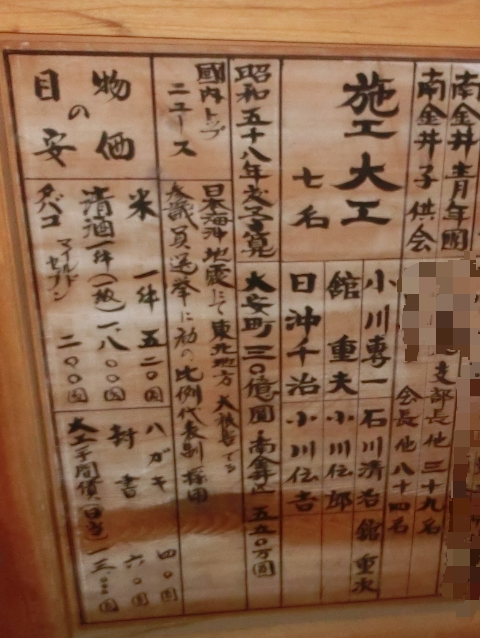 南金井青年團
支部長他三十九名
南金井子供会
会長他八十四名
施工大工
七名
小川専一
石川清治
舘重次
舘重夫
小川伝郎
日沖千治
小川伝吉
昭和五十八年度予算
大安町三〇億圓
南金井五五〇万圓
國内トップ
ニュース
日本海沖地震にて東北地方大被害でる
参議員選挙に初の比例代表制採用
物価
の
目安
米
一件五二〇圓
清酒一件(一級)一、八〇〇圓
タバコ
マイルド
セブン
二〇〇圓
ハガキ
四〇圓
封書
六〇圓
大工手間賃(日当)